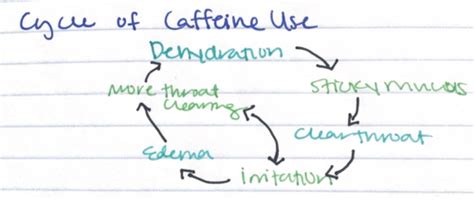 Cycle of Caffeine Use
Dehydration
Sticky mucus
Clear throat
Irritation
Edema
More throat
clearing